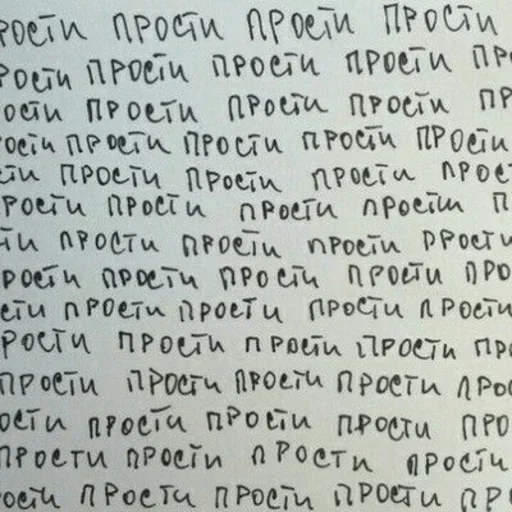 рости прости прости прости
рости прости прости прости пр
ости прости прости прости пр
ости прости прости прости прости
сти прости прости прости прос
рости прости прости прости п
ти прости прости прости прости
рости прости прости прости про
сти прости прости прости прости
рости прости прости прости пр
прости прости прости прости про
ости прости прости прости про
прости прости прости прости
ости прости прости прости пр